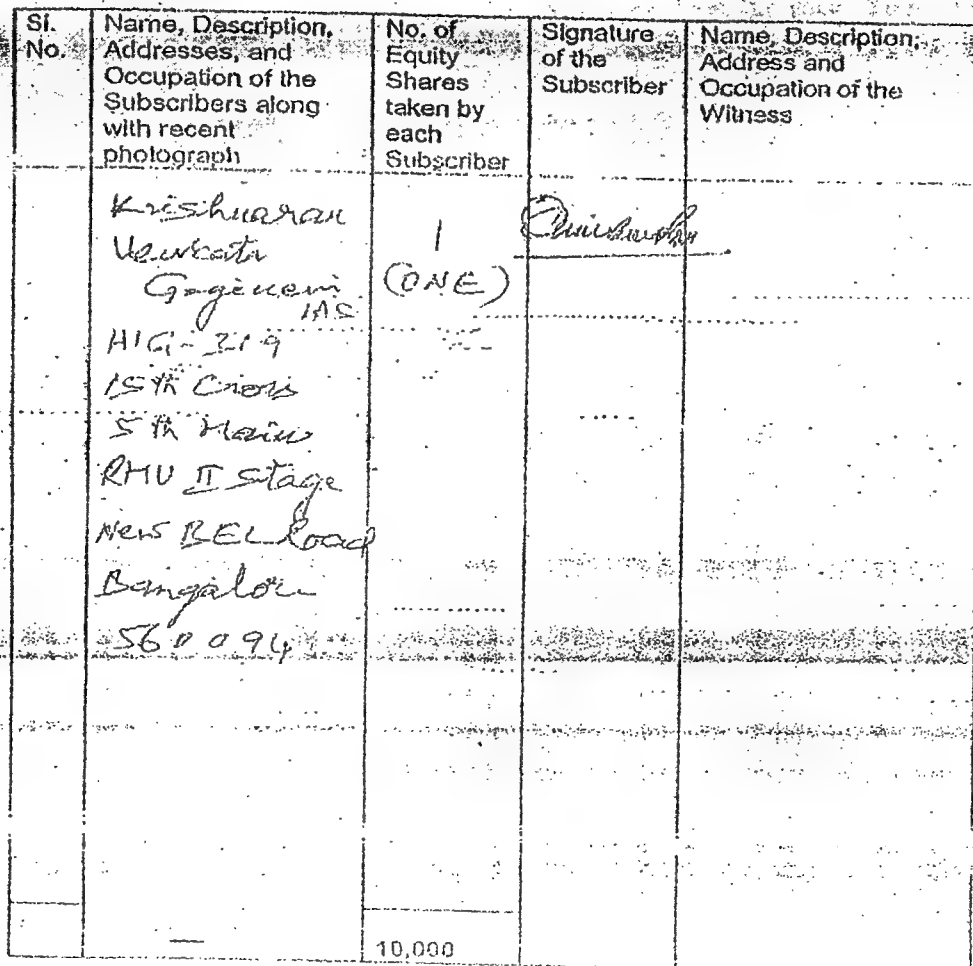 Sl.
No.
Name, Description,
Addresses, and
Occupation of the
Subscribers along
with recent
photograph
No. of
Equity
Shares
taken by
each
Subscriber
Signature
of the
Subscriber
Name, Description,
Address and
Occupation of the
Witness
Krishnarau
Venkata
Gogineni
IAS
HIG-319
15th Cross
5th Main
RMV II Stage
New BEL Road
Bangalore
560094
1
(ONE)
10,000